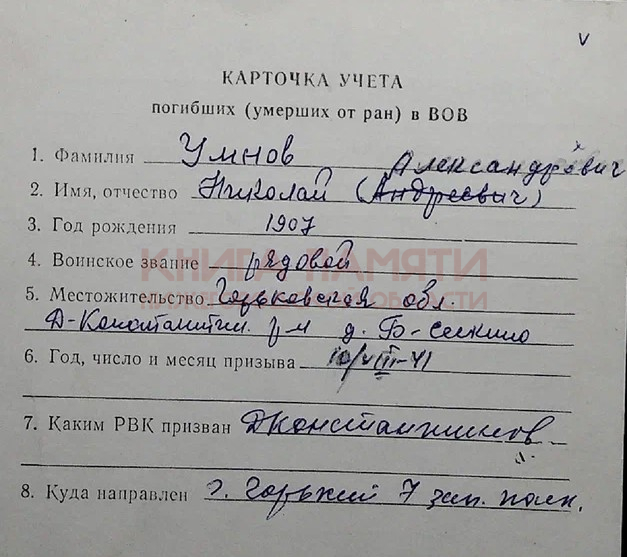 v
КАРТОЧКА УЧЕТА
погибших (умерших от ран) в ВОВ
1. Фамилия Умнов Александрович
2. Имя, отчество Николай (Андреевич)
3. Год рождения 1907
4. Воинское звание рядовой
КНИГА ПАМЯТИ
НИЖЕГОРОДСКОЙ ОБЛАСТИ
5. Местожительство Горьковская обл.
Д-Константин. р-н д. Б-Сескино
6. Год, число и месяц призыва 10/VIII-41
7. Каким РВК призван ДКонстантинов.
8. Куда направлен г. Горький 7 зап. полк.